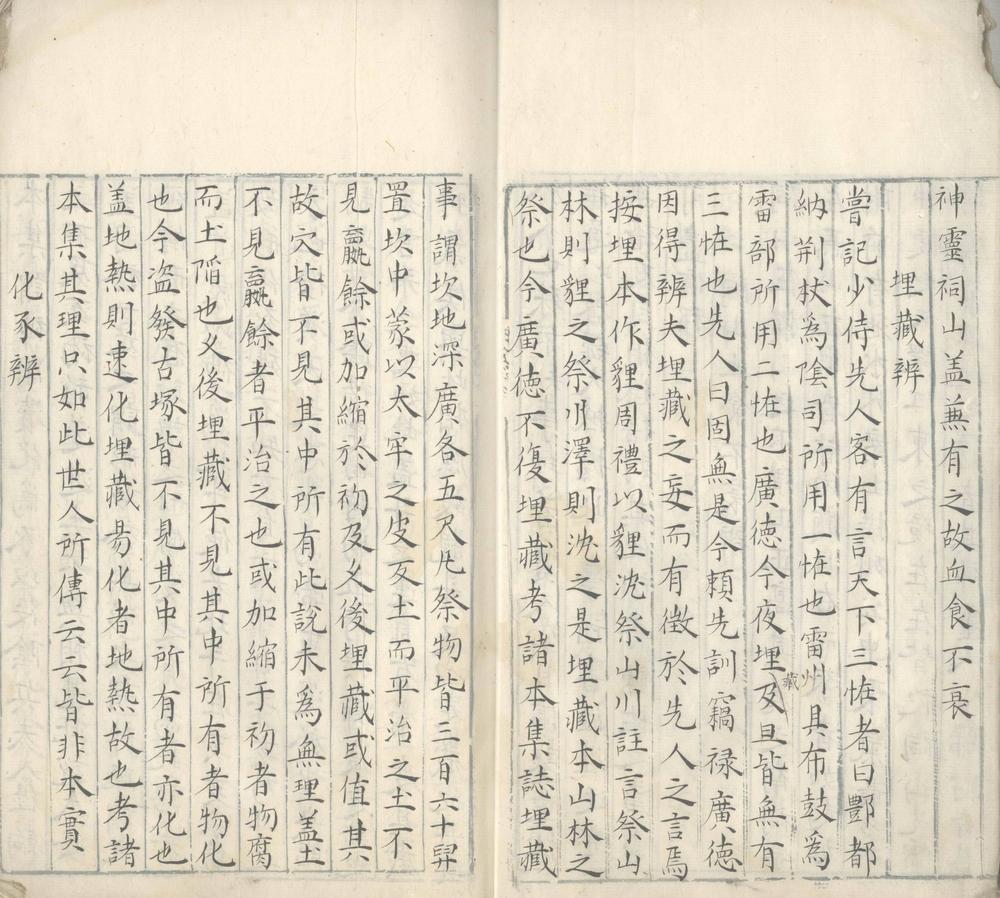 神靈祠山盖蕪有之故血食不衰
埋藏辨
嘗記少侍先人客有言天下三恠者曰酆都
納荆杖爲陰司所用一恠也雷州具布鼓爲
雷部所用二恠也廣徳今夜埋藏及旦皆無有
三恠也先人曰固無是今頼先訓竊禄廣徳
因得辨夫埋藏之妄而有徴於先人之言焉
按埋本作貍周禮以貍沈祭山川註言祭山
林則貍之祭川澤則沈之是埋藏本山林之
祭也今廣徳不復埋藏考諸本集誌埋藏
事謂坎地深廣各五尺凡祭物皆三百六十𦥑
置坎中䝉以太牢之皮反土而平治之土不
見贏餘或加縮於初及乆後埋藏或值其
故穴皆不見其中所有此説未爲無理盖土
不見贏餘者平治之也或加縮于初者物腐
而土䧟也乆後埋藏不見其中所有者物化
也今盗發古塚皆不見其中所有者亦化也
盖地熱則速化埋藏昜化者地熱故也考諸
本集其理只如此世人所傳云云皆非本實
化豕辨